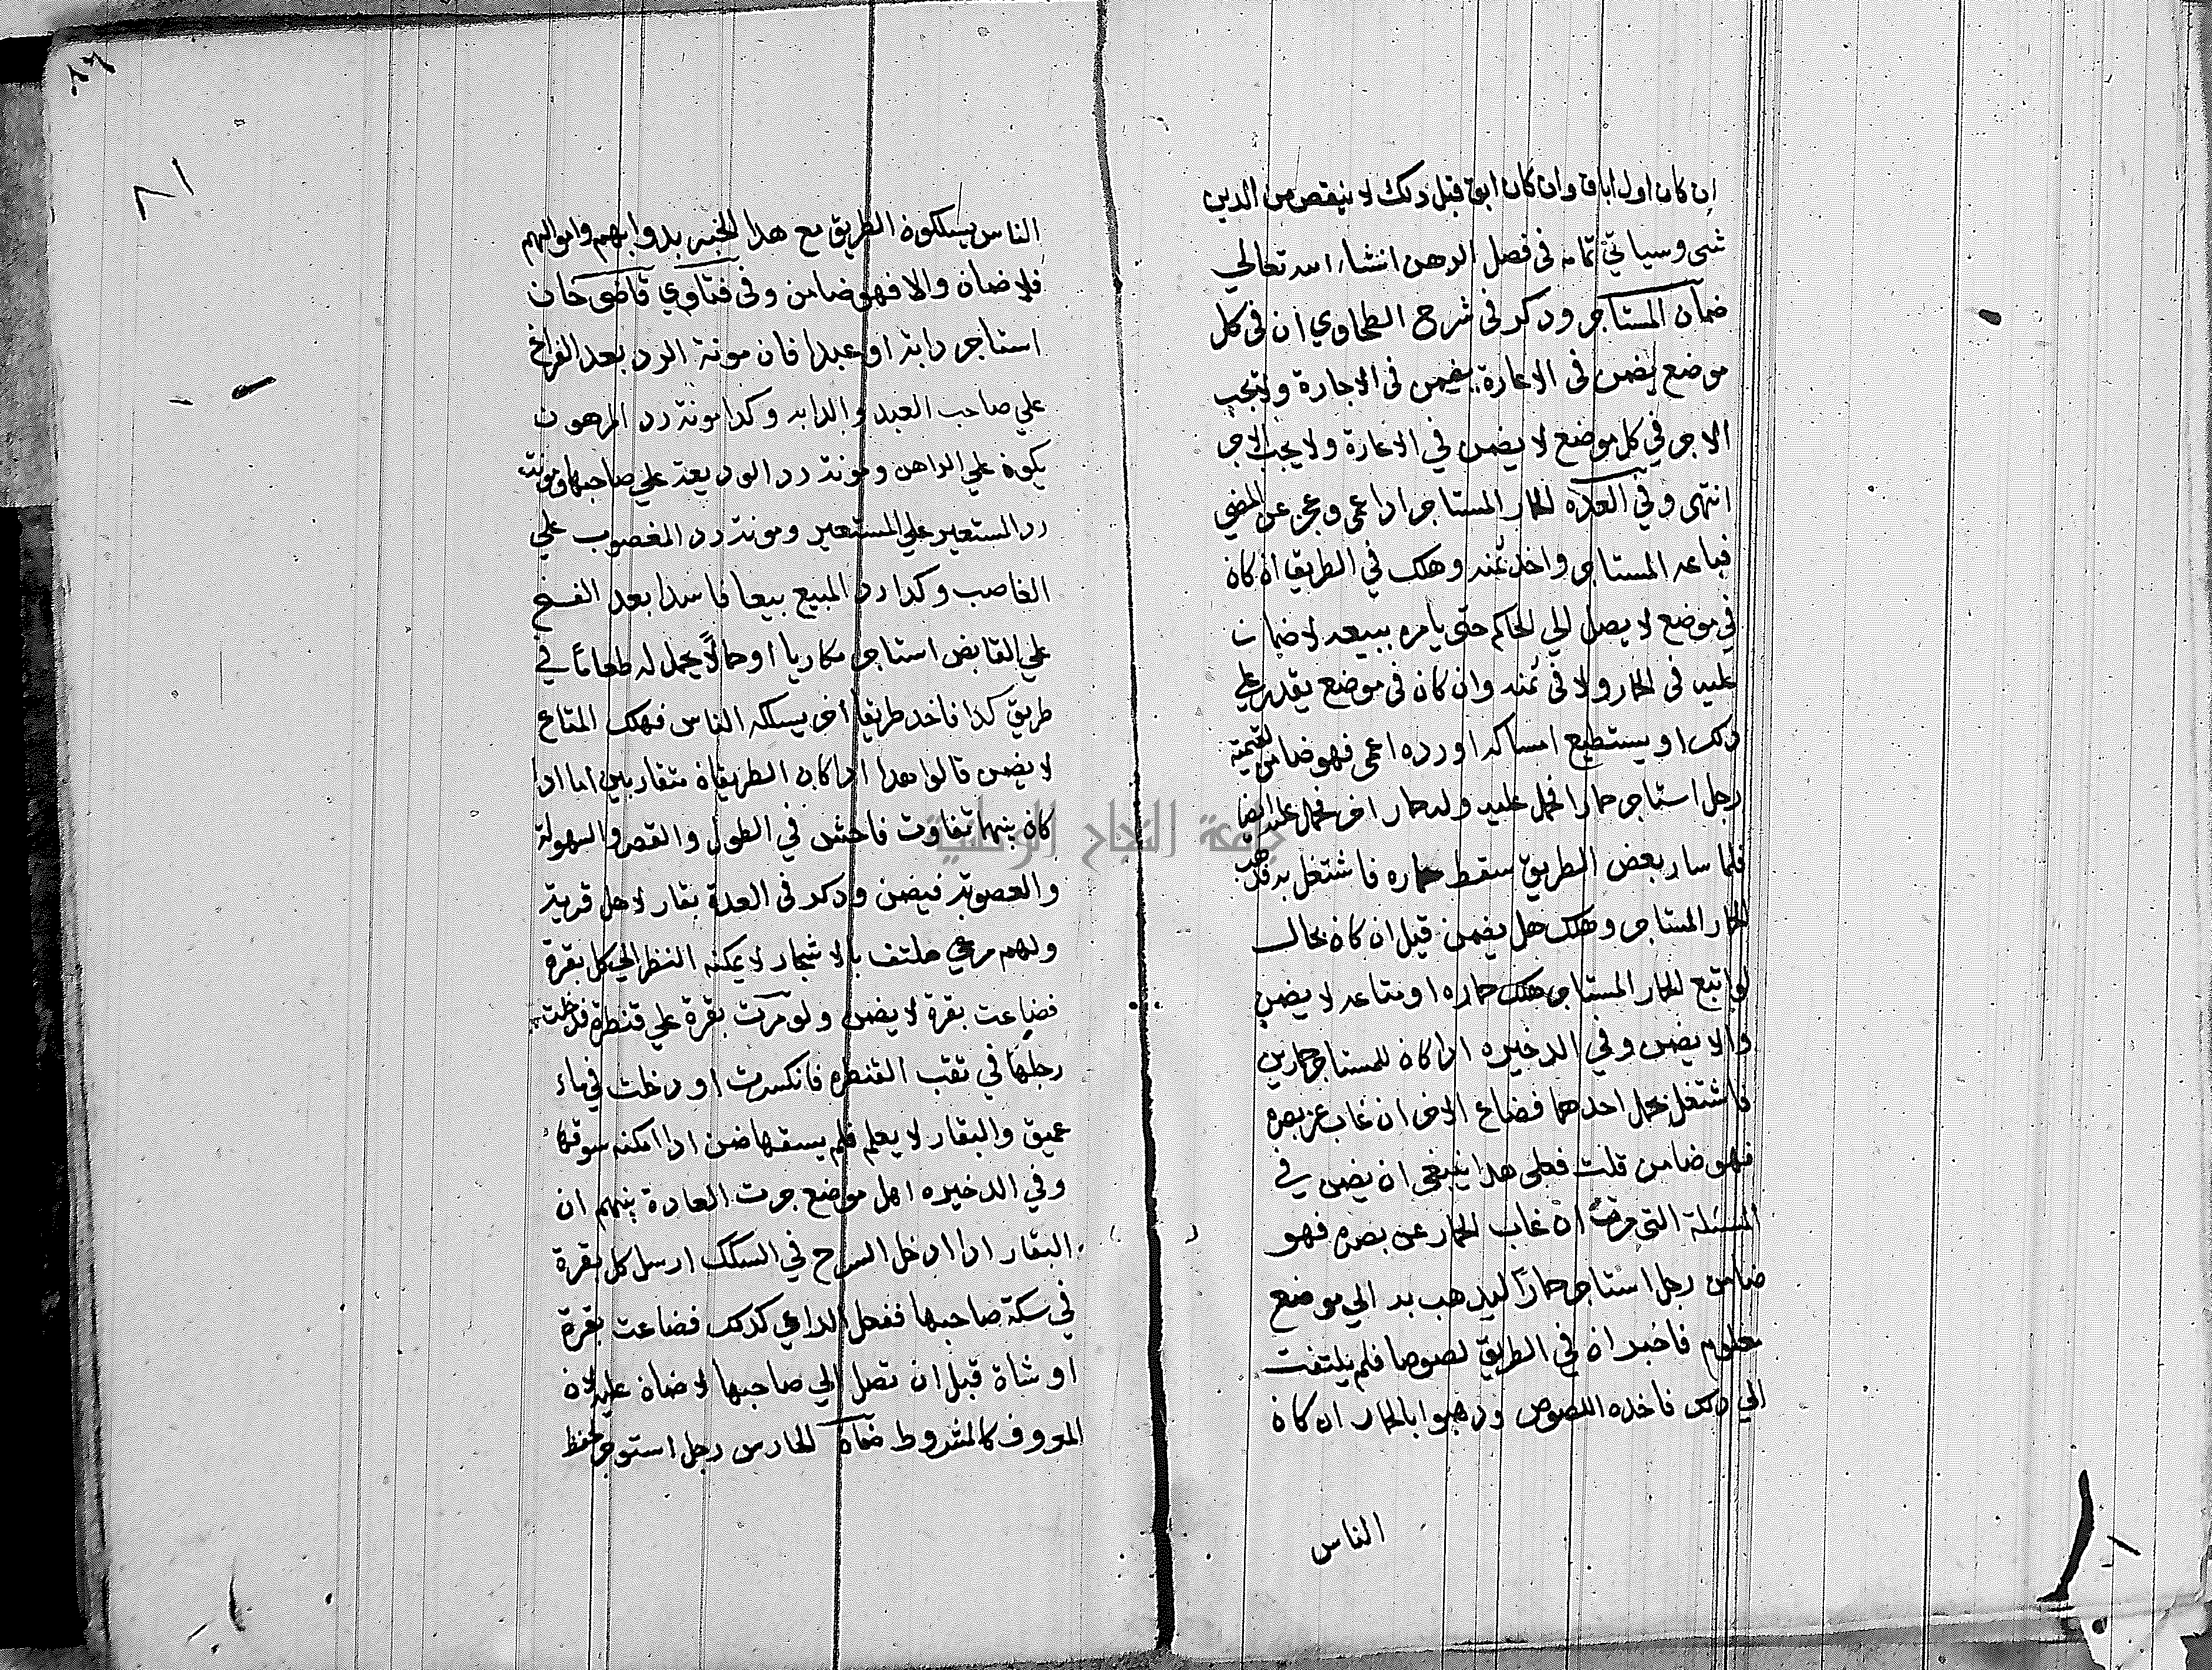 ان كان اول اباق وان كان ابق قبل ذلك لا ينقص من الدين
شي وسياتي تمامه في فصل الرهن انشاء الله تعالي
ضمان المستاجر وذكر في شرح الطحاوي ان في كل
موضع يضمن في الاعارة يضمن في الاجارة ويجب
الاجر في كل موضع لا يضمن في الاعارة ولا يجب الاجر
انتهى وفي العدة الحمار المستاجر اذا عمي وعجز عن المضي
فباعه المستاجر واخذ ثمنه وهلك في الطريق ان كان
في موضع لا يصل الي الحاكم حتى يامره ببيعه لا ضمان
عليه في الحمار ولا في ثمنه وان كان في موضع يقدر علي
ذلك او يستطيع امساكه او رده اعمى فهو ضامن لقيمته
رجل استاجر حمارا فحمل عليه وله حمار اخر فحمل عليه ايضا
فلما سار بعض الطريق سقط حماره فاشتغل به فذهب
الحمار المستاجر وهلك هل يضمن قيل ان كان بحال
لو اتبع الحمار المستاجر هلك حماره او متاعه لا يضمن
والا يضمن وفي الدخيره اذا كان للمستاجر حمارين
فاشتغل بحمل احدهما فضاع الاخر ان غاب عن بصره
فهو ضامن قلت فعلى هذا ينبغي ان يضمن في
المسئلة التي مرت ان غاب الحمار عن بصره فهو
ضامن رجل استاجر حمارا ليذهب به الي موضع
معلوم فاخبر ان في الطريق لصوصا فلم يلتفت
الي ذلك فاخذه اللصوص وذهبوا بالحمار ان كان
الناس
الناس يسلكون الطريق مع هذا الخبر بدوابهم واموالهم
فلا ضمان والا فهو ضامن وفي فتاوي قاضي خان
استاجر دابة او عبدا فان مونة الرد بعد الفراغ
علي صاحب العبد والدابه وكذا مونة رد المرهون
يكون علي الراهن ومونة رد الوديعة علي صاحبها ومونت
رد المستعير علي المستعير ومونة رد المغصوب علي
الغاصب وكذا رد المبيع بيعا فاسدا بعد الفسخ
علي القابض استاجر مكاريا او حمالاً يحمل له طعاما في
طريق كذا فاخذ طريقا اخر يسلكه الناس فهلك المتاع
لا يضمن قالوا هذا اذا كان الطريقان متقاربين اما اذا
كان بينهما تفاوت فاحش في الطول والقصر والسهولة
والصعوبة فيضمن وذكر في العدة بقار لاهل قرية
ولهم مرعي ملتف بالاشجار لا يمكنه النظر الي كل بقرة
فضاعت بقرة لا يضمن ولو مرت بقرة علي قنطرة فدخلت
رجلها في ثقب القنطره فانكسرت او دخلت في ماء
عميق والبقار لا يعلم فلم يسقها ضمن اذا امكنه سوقها
وفي الدخيره اهل موضع جرت العادة بينهم ان
البقار اذا ادخل السرح في السكك ارسل كل بقرة
في سكة صاحبها ففعل الراعي كذلك فضاعت بقرة
او شاة قبل ان تصل الي صاحبها لا ضمان عليه لان
المعروف كالمشروط ضمان الحارس رجل استوجر لحفظ
جامعة النجاح الوطنية